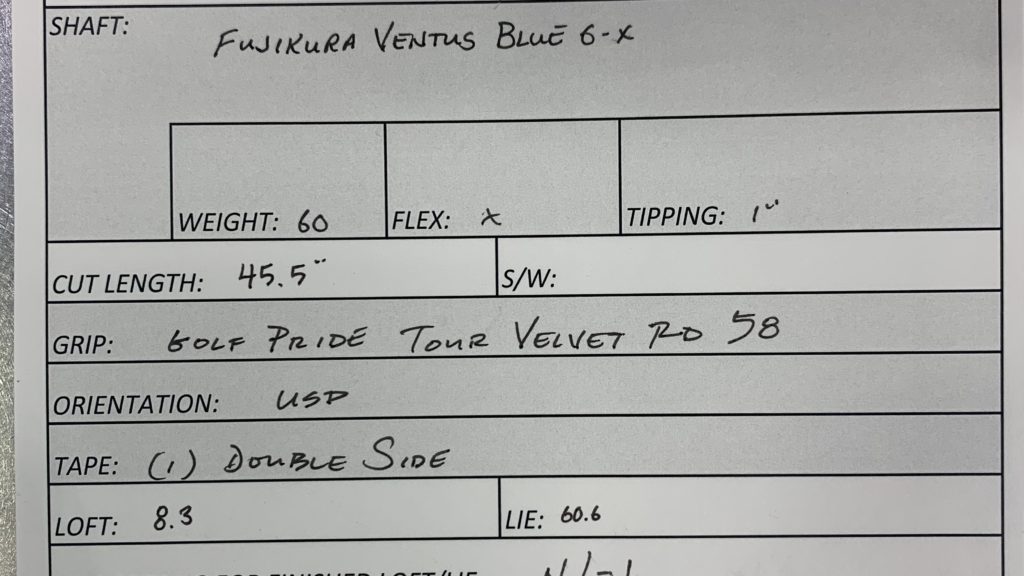 SHAFT: FUJIKURA VENTUS BLUE 6-X
WEIGHT: 60 FLEX: X TIPPING: 1"
CUT LENGTH: 45.5" S/W:
GRIP: GOLF PRIDE TOUR VELVET RD 58
ORIENTATION: USD
TAPE: (1) DOUBLE SIDE
LOFT: 8.3 LIE: 60.6